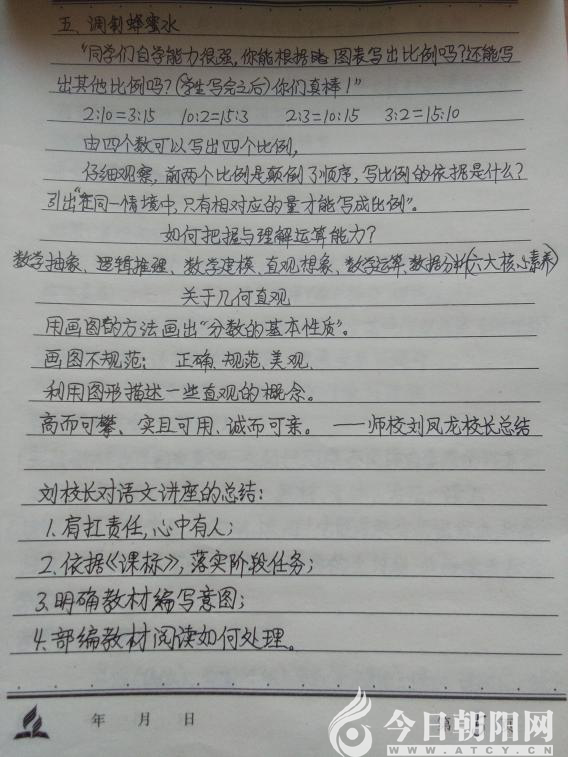 五、调制蜂蜜水
"同学们自学能力很强,你能根据 图表写出比例吗?还能写
出其他比例吗?(学生写完之后)你们真棒!"
2:10=3:15 10:2=15:3 2:3=10:15 3:2=15:10
由四个数可以写出四个比例,
仔细观察,前两个比例是颠倒了顺序,写比例的依据是什么?
引出"在同一情境中,只有相对应的量才能写成比例"。
如何把握与理解运算能力?
数学抽象、逻辑推理、数学建模、直观想象、数学运算、数据分析(六大核心素养)
关于几何直观
用画图的方法画出"分数的基本性质"。
画图不规范; 正确、规范、美观、
利用图形描述一些直观的概念。
高而可攀、实且可用、诚而可亲。 ——师校刘凤龙校长总结
刘校长对语文讲座的总结:
1.肩扛责任,心中有人;
2.依据《课标》,落实阶段任务;
3.明确教材编写意图;
4.部编教材阅读如何处理。
年 月 日
今日朝阳网
WWW.ATCY.CN